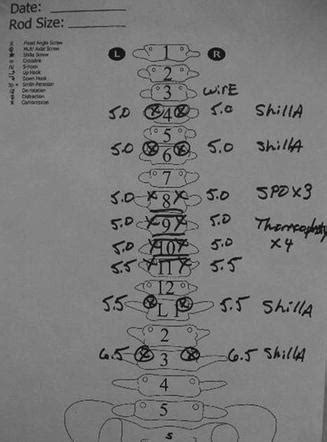 Date:
Rod Size:
Fixed Angle Screw
Multi Axial Screw
Shilla Screw
Crosslink
S-hook
Up Hook
Down Hook
Smith Petersen
Derotation
Distraction
Compression
L 1 R
2
3 wirE
5.0 4 5.0 ShillA
5
5.0 6 5.0 ShillA
7
5.0 8 5.0 SPO x3
5.0 9 5.0
5.0 10 5.0 x4
5.5 11 5.5
12
5.5 L 1 5.5 ShillA
2
6.5 3 6.5 ShillA
4
5
S